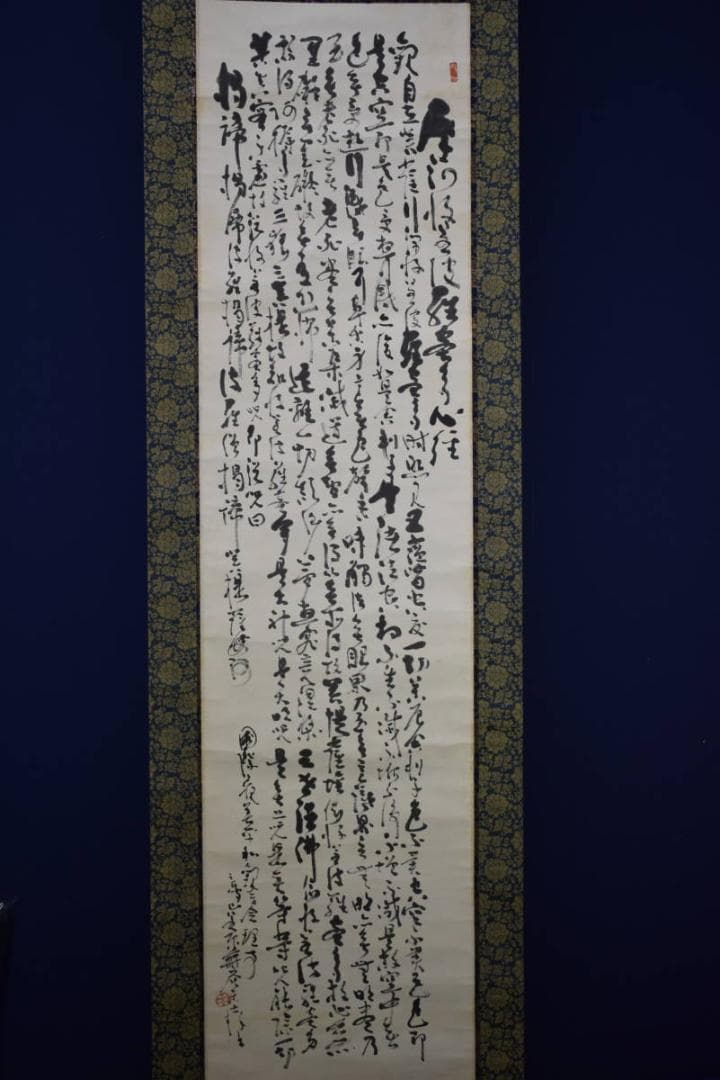 摩訶般若波羅蜜多心経
観自在菩薩行深般若波羅蜜多時照見五蘊皆空度一切苦厄舎利子色不異空空不異色色即
是空空即是色受想行識亦復如是舎利子是諸法空相不生不滅不垢不浄不増不減是故空中無
色無受想行識無眼耳鼻舌身意無色声香味触法無眼界乃至無意識界無無明亦無無明尽乃
至無老死亦無老死尽無苦集滅道無智亦無得以無所得故菩提薩埵依般若波羅蜜多故心無
罣礙無罣礙故無有恐怖遠離一切顛倒夢想究竟涅槃三世諸佛依般若波羅蜜多
故得阿耨多羅三藐三菩提故知般若波羅蜜多是大神呪是大明呪是無上呪是無等等呪能除一切
苦真実不虚故説般若波羅蜜多呪即説呪曰
羯諦羯諦波羅羯諦波羅僧羯諦菩提薩婆訶